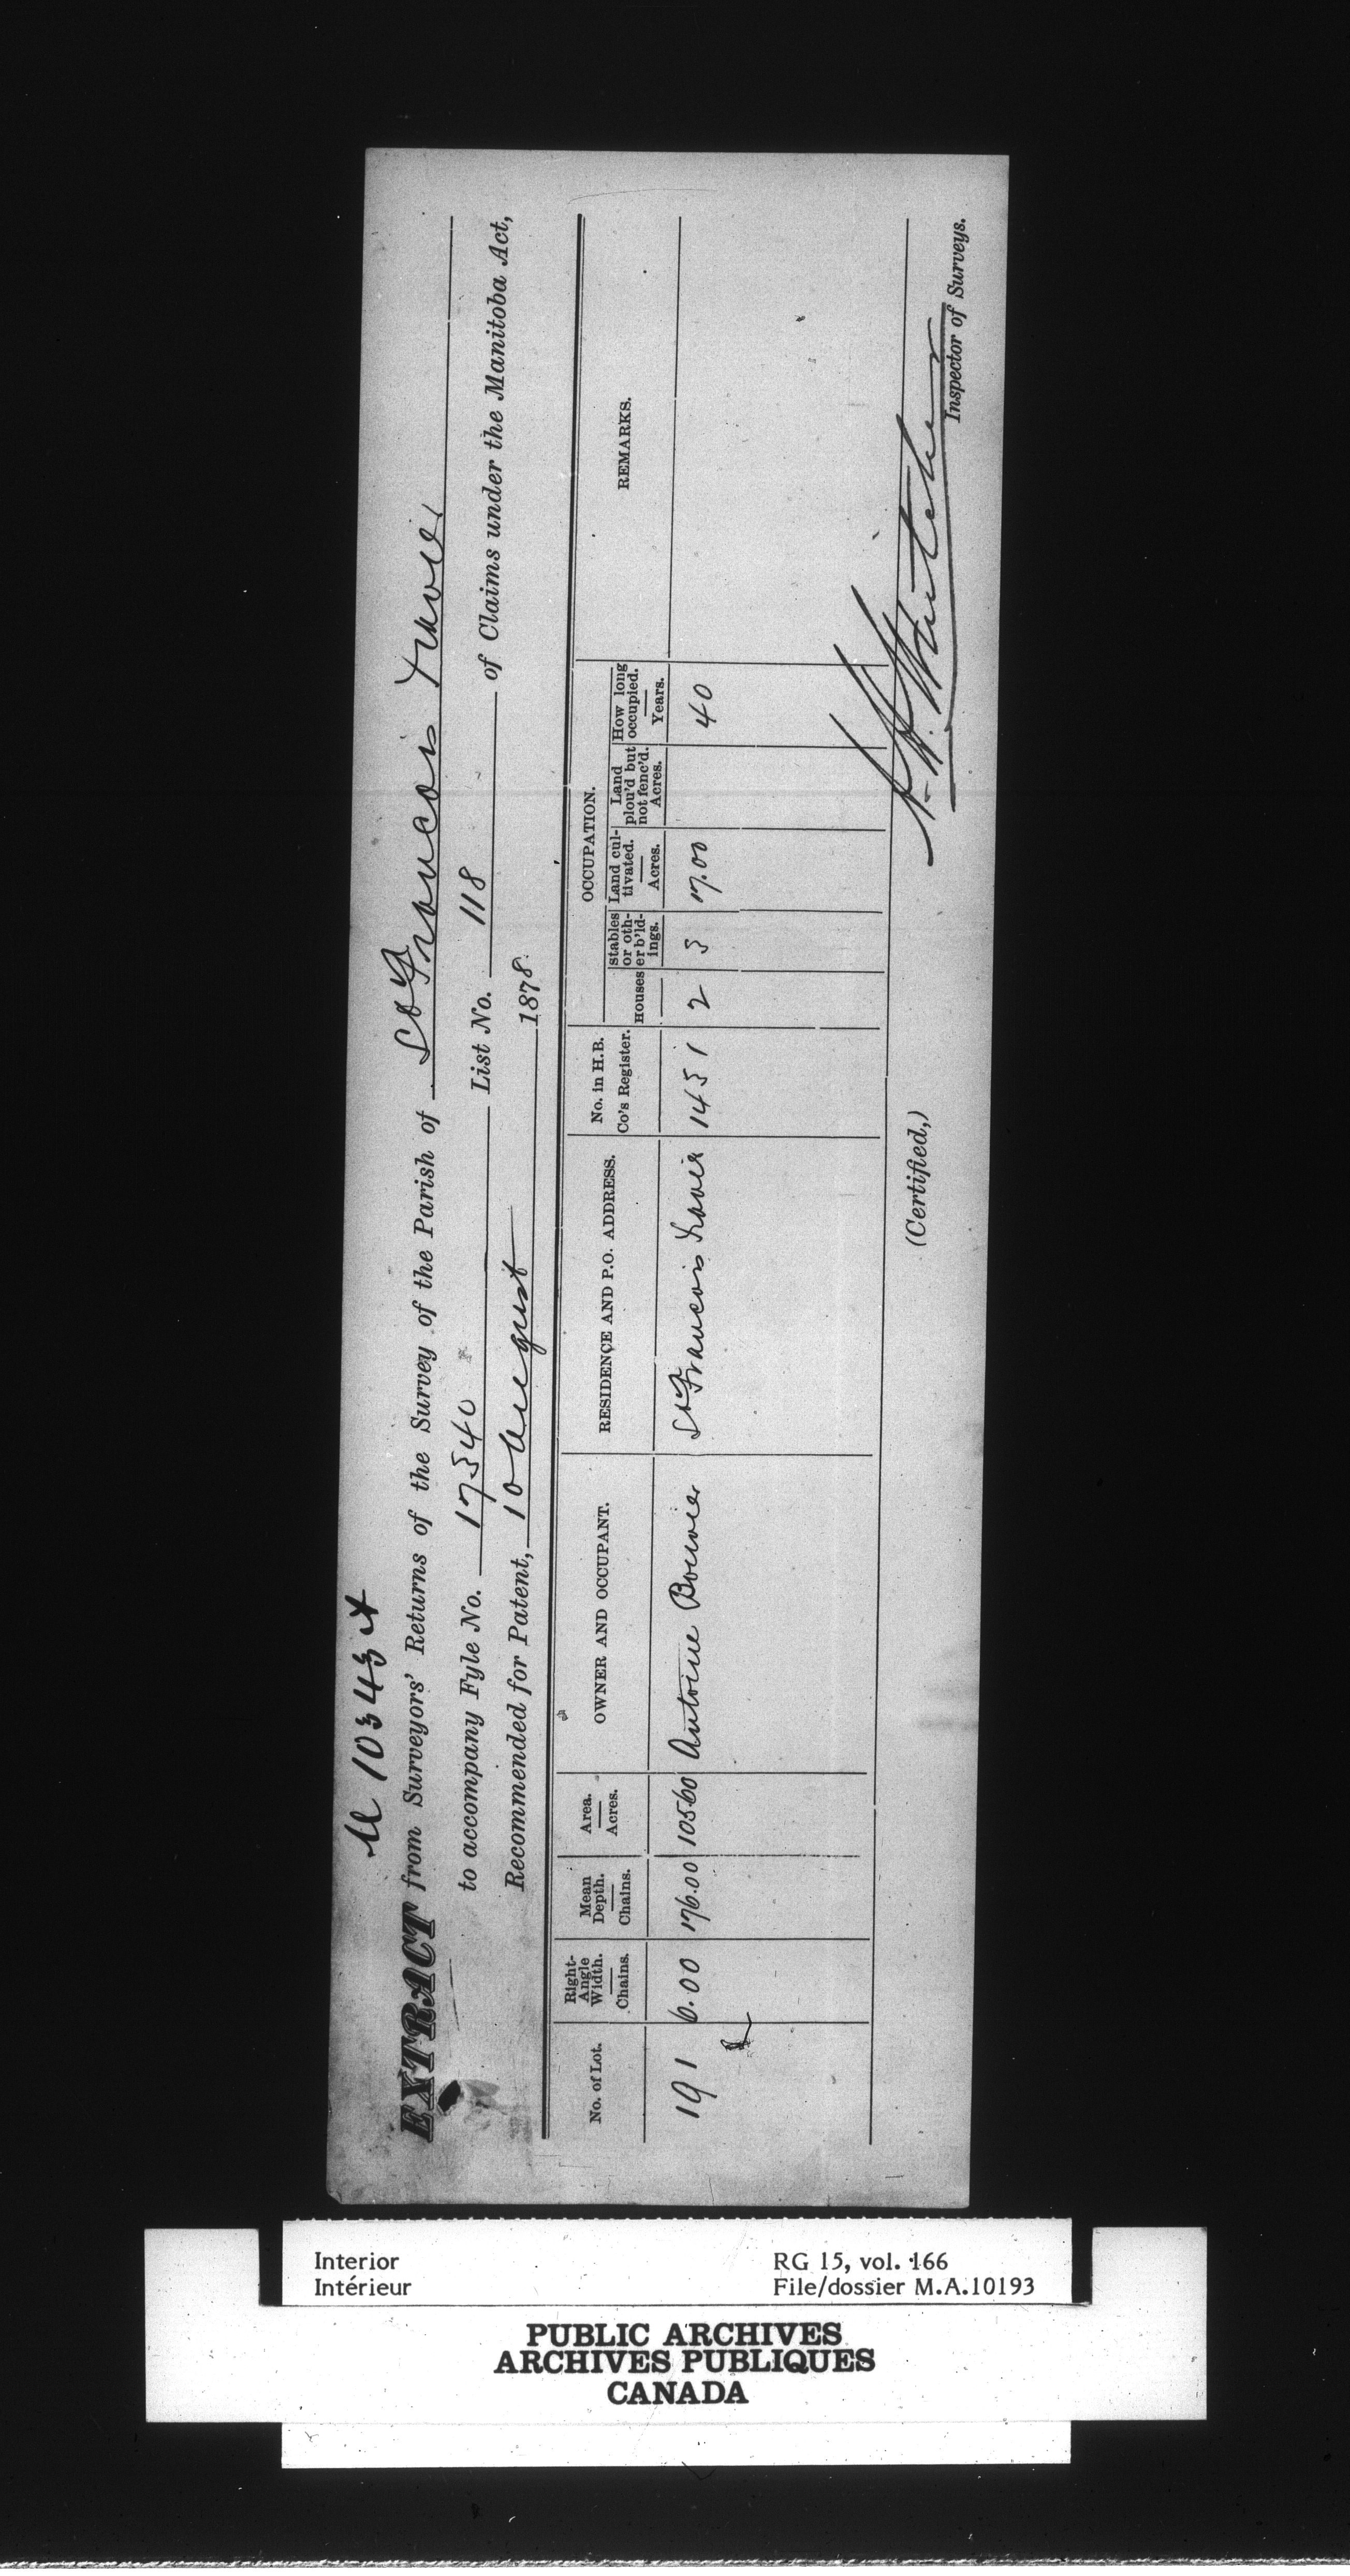 M 10343 A
EXTRACT from Surveyors' Returns of the Survey of the Parish of St Francois Xavier
to accompany Fyle No. 17540 List No. 118 of Claims under the Manitoba Act,
Recommended for Patent, 10 August 1878.
No. of Lot. Right-Angle Width. Chains. Mean Depth. Chains. Area. Acres. OWNER AND OCCUPANT. RESIDENCE AND P.O. ADDRESS. No. in H.B. Co's Register. OCCUPATION. Houses stables or other b'ldings. Land cultivated. Acres. Land plou'd but not fenc'd. Acres. How long occupied. Years. REMARKS.
191 6.00 176.00 105.60 Antoine Bouvier St Francois Xavier 1451 2 3 17.00 40
(Certified,)
Inspector of Surveys.
Interior
Intérieur
RG 15, vol. 166
File/dossier M.A.10193
PUBLIC ARCHIVES
ARCHIVES PUBLIQUES
CANADA